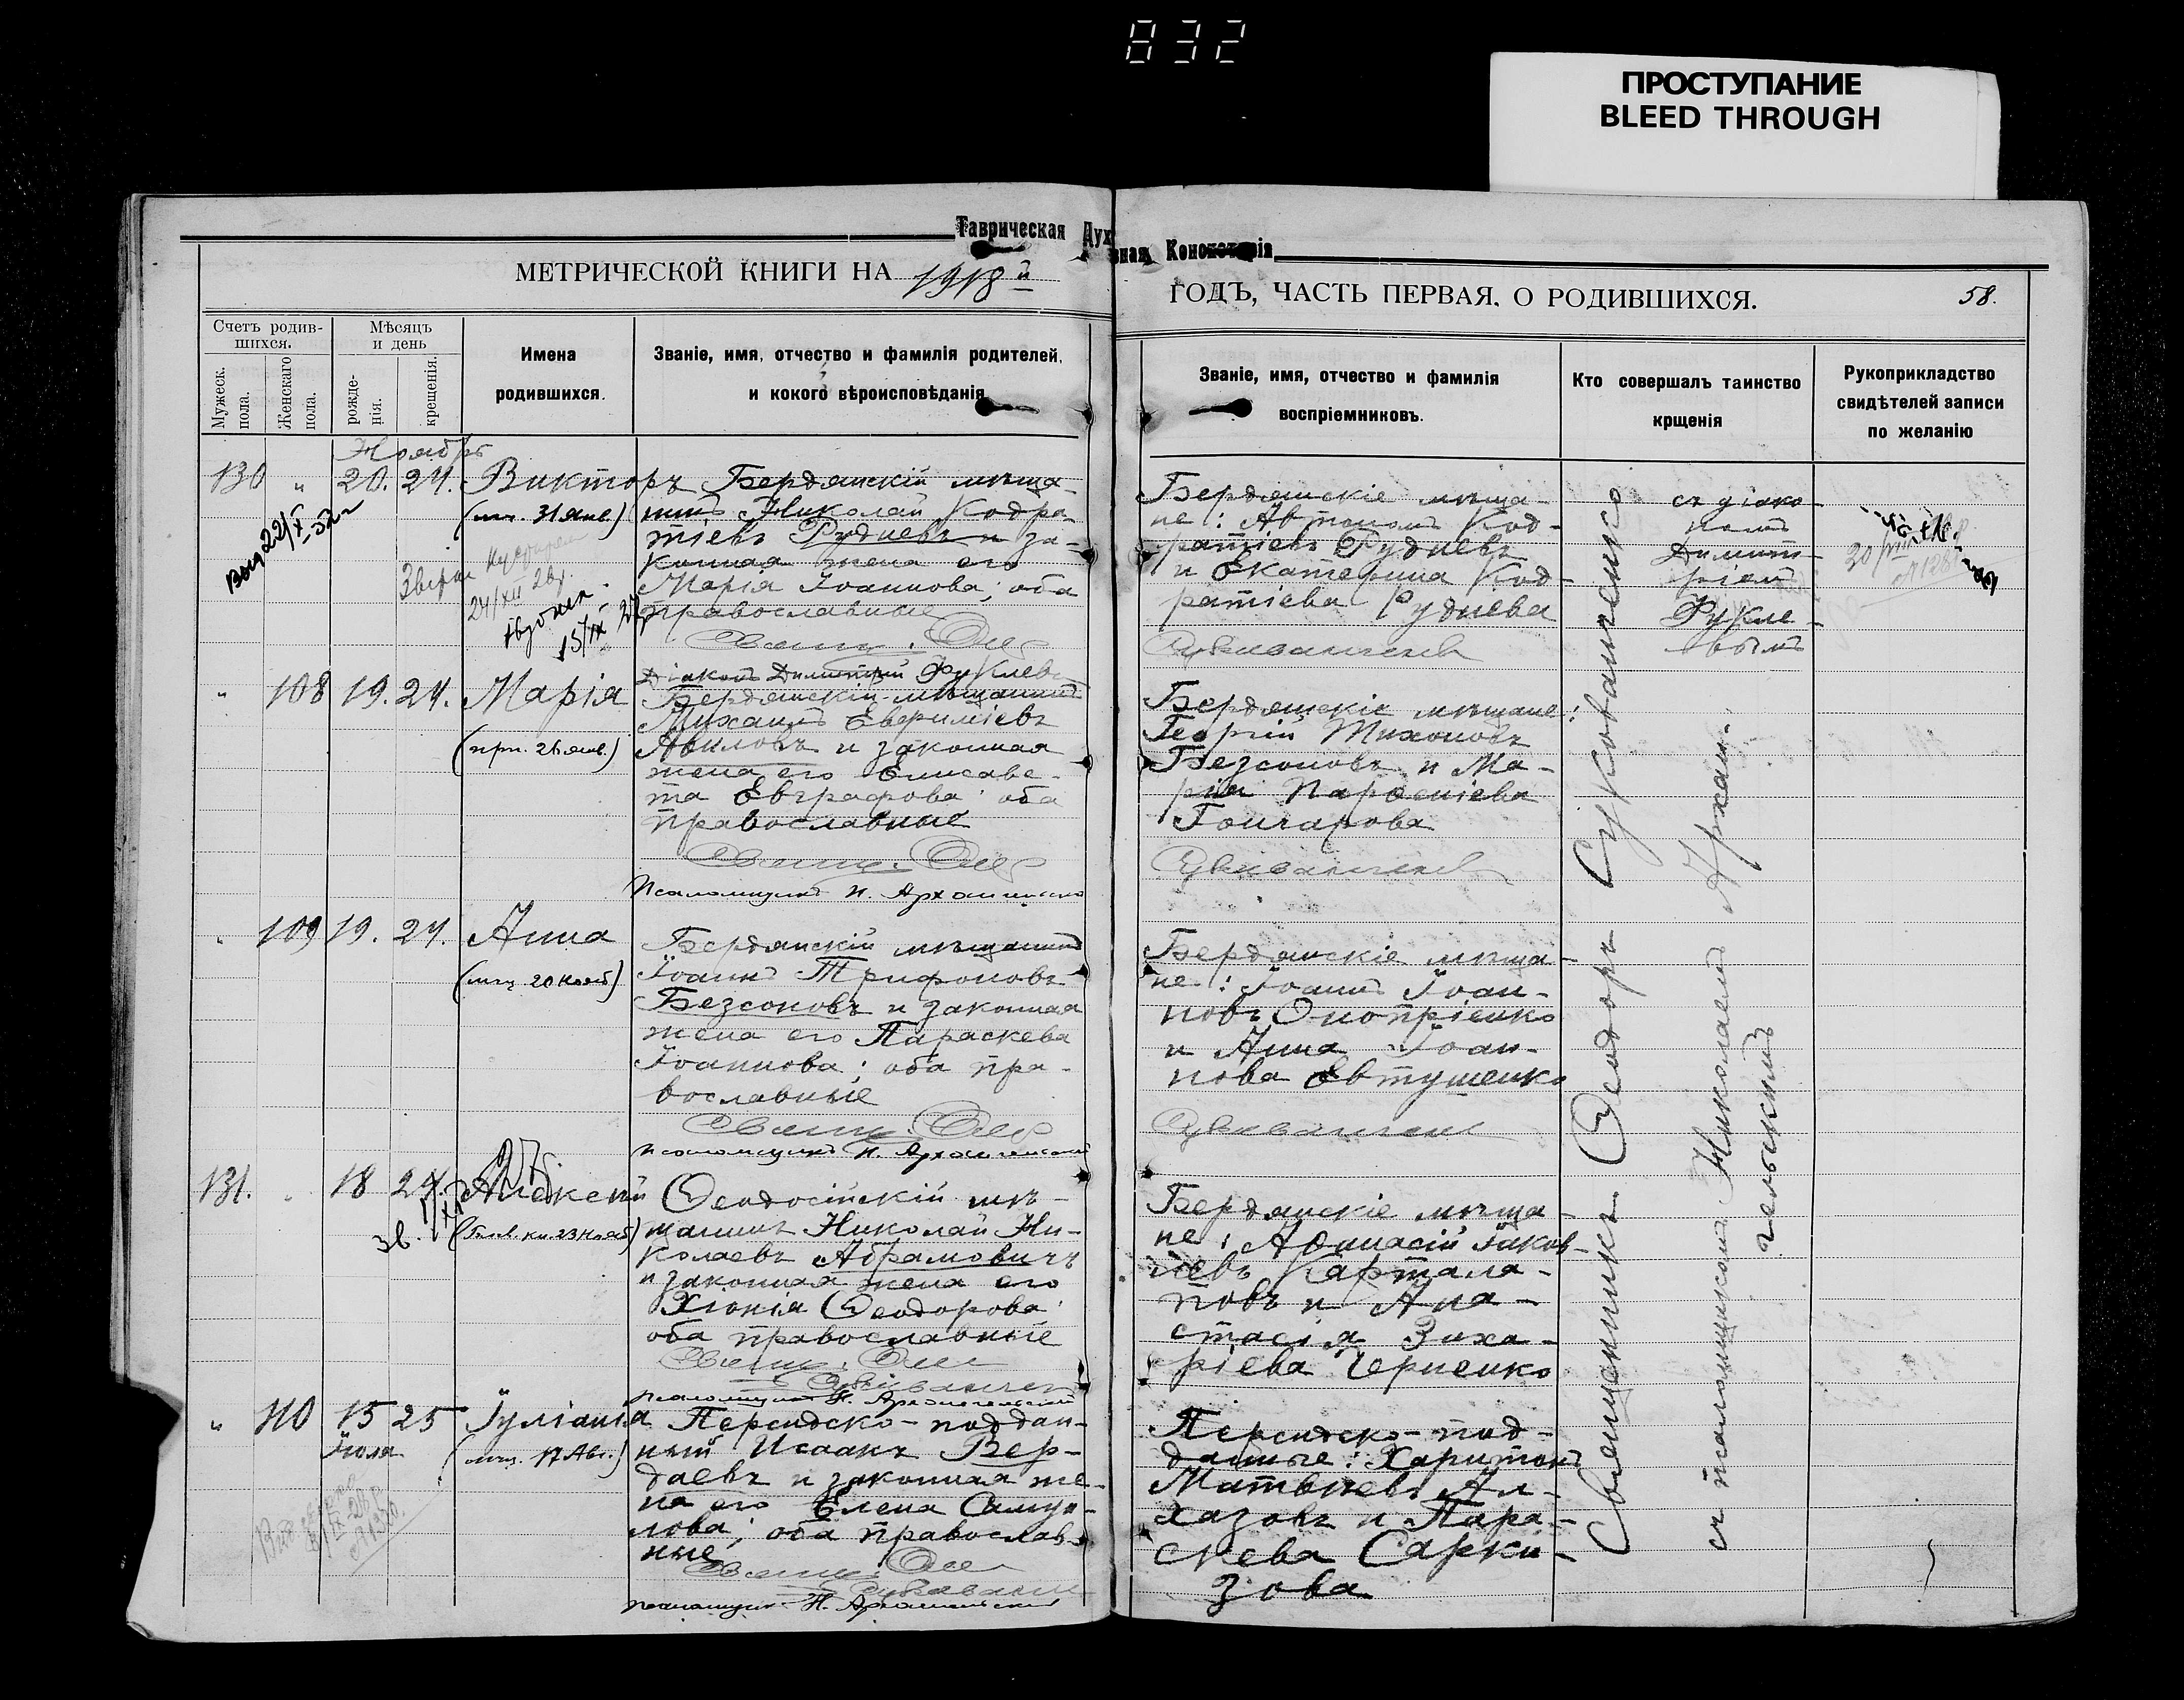 832
ПРОСТУПАНИЕ
BLEED THROUGH
Таврическая Дух
вная Консисторія
МЕТРИЧЕСКОЙ КНИГИ НА 1918й
ГОДЪ, ЧАСТЬ ПЕРВАЯ, О РОДИВШИХСЯ.
58.
Счетъ родив-
шихся.
Мужеск.
пола.
Женскаго
пола.
Мѣсяцъ
и день
рожде-
нія.
крещенія.
Имена
родившихся.
Званіе, имя, отчество и фамилія родителей,
и кокого вѣроисповѣданія
Званіе, имя, отчество и фамилія
воспріемниковъ.
Кто совершалъ таинство
крщенія
Рукоприкладство
свидѣтелей записи
по желанію
Ноябрь
130 " 20. 24. Викторъ
(мч. 31 янв.)
Бердянскій мѣща-
нинъ Николай Кодра-
тіевъ Рудневъ и за-
конная жена его
Марія Іоаннова; оба
православные
Діаконъ Димитрій Фуклевъ
Бердянскіе мѣща-
не: Автономъ Код-
ратіевъ Рудневъ
и Екатерина Код-
ратіева Руднева
съ діако-
номъ
Димит-
ріемъ
Фукле-
вымъ
" 108 19. 24. Марія
(прп. 26 янв.)
Бердянскій мѣщанинъ
Михаилъ Евфиміевъ
Авиловъ и законная
жена его Елисаве-
та Евграфова; оба
православные
Псаломщикъ Н. Архангельскій
Бердянскіе мѣщане:
Георгій Тихоновъ
Безсоновъ и Ма-
рія Парѳеніева
Гончарова
" 109 19. 24. Анна
Бердянскій мѣщанинъ
Іоаннъ Трифоновъ
Безсоновъ и законная
жена его Параскева
Іоаннова; оба пра-
вославные
Псаломщикъ Н. Архангельскій
Бердянскіе мѣща-
не: Іоаннъ Іоан-
новъ Онопріенко
и Анна Іоан-
нова Евтушенко
131. " 18 24.
Ѳеодосійскій мѣ-
щанинъ Николай Ни-
колаевъ Абрамовичъ
и законная жена его
Хіонія Ѳеодорова;
оба православные
Псаломщикъ Н. Архангельскій
Бердянскіе мѣща-
не: Аѳанасій Іаков-
левъ Картала-
повъ и Ана-
стасія Заха-
ріева Черненко
" 110 15 25 Іуліанія
Іюля
(мчц. 17 Авг.)
Персидско-поддан-
ный Исаакъ Вер-
даевъ и законная же-
на его Елена Самуи-
лова; оба православ-
ные
Псаломщикъ Н. Архангельскій
Персидско-под-
данные: Харитонъ
Матвѣевъ Ал-
хазовъ и Пара-
скева Сарки-
зова
Священникъ Ѳеодоръ Сукованченко
съ псаломщикомъ Николаемъ Архан-
гельскимъ